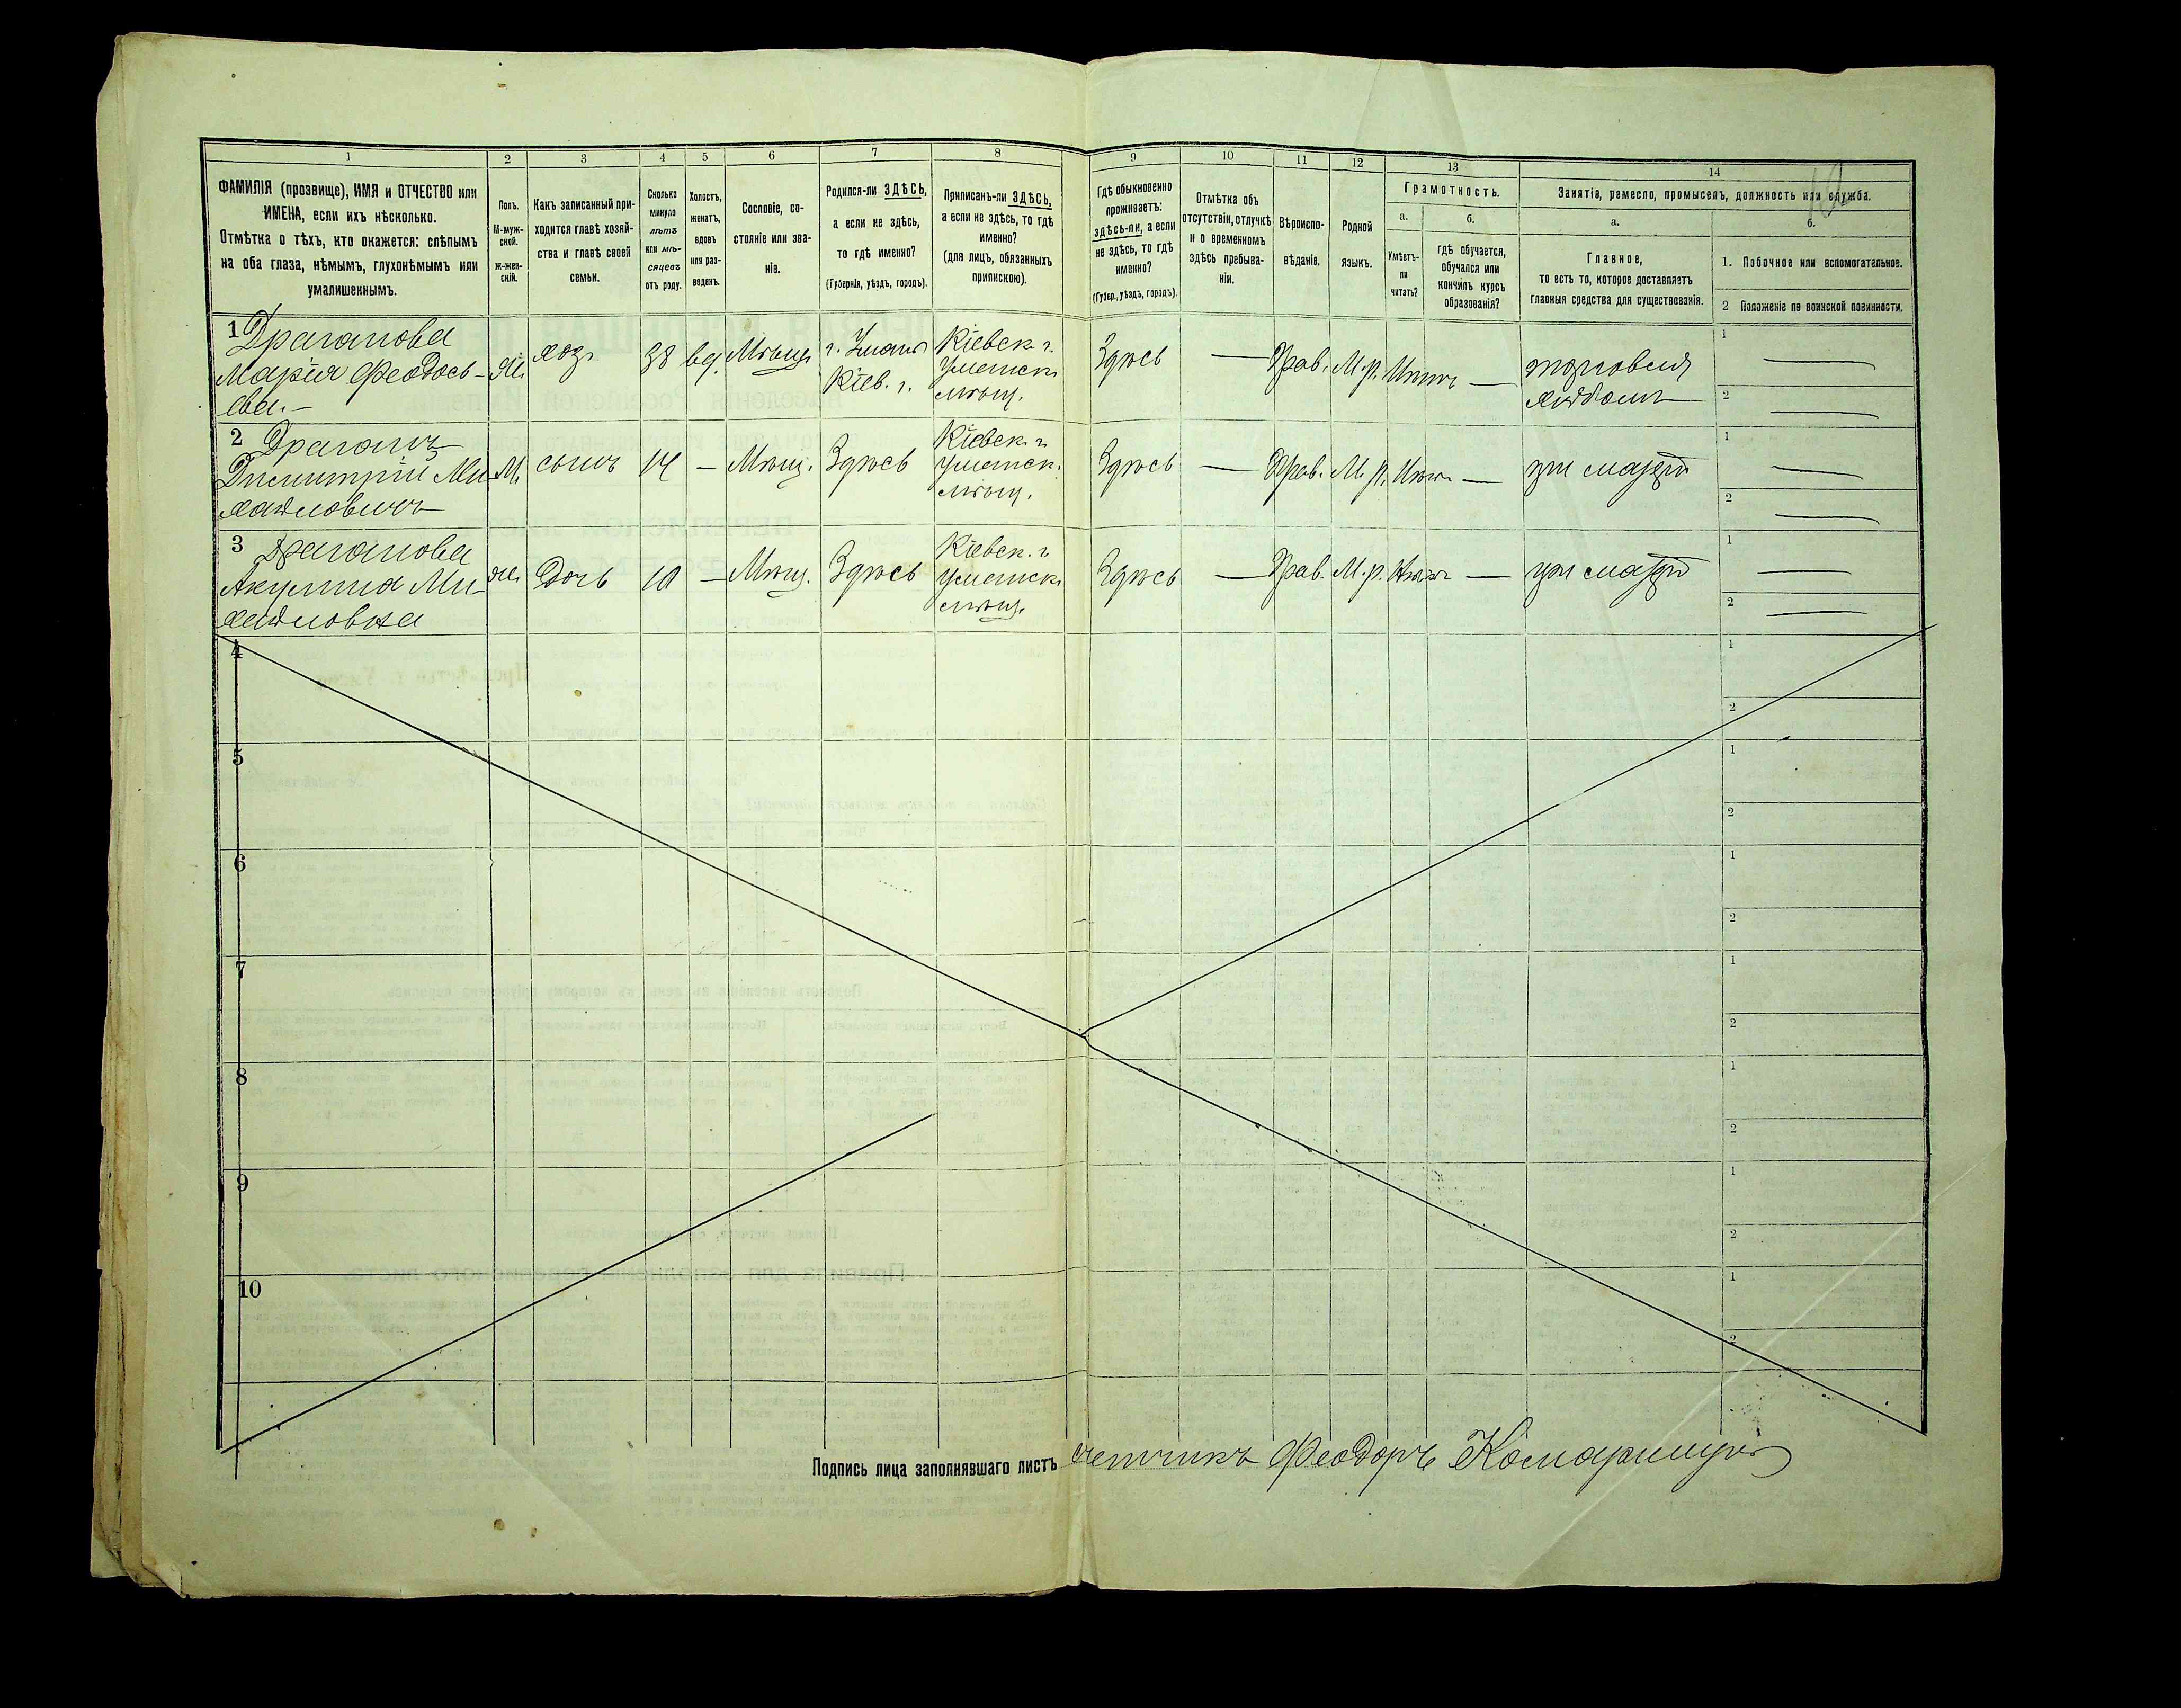 1 2 3 4 5 6 7 8 9 10 11 12 13 14
ФАМИЛІЯ (прозвище), ИМЯ и ОТЧЕСТВО или
ИМЕНА, если ихъ нѣсколько.
Отмѣтка о тѣхъ, кто окажется: слѣпымъ
на оба глаза, нѣмымъ, глухонѣмымъ или
умалишеннымъ.
Полъ.
М-муж-
ской.
ж-жен-
скій.
Какъ записанный при-
ходится главѣ хозяй-
ства и главѣ своей
семьи.
Сколько
минуло
лѣтъ
или мѣ-
сяцевъ
отъ роду.
Холостъ,
женатъ,
вдовъ
или раз-
веденъ.
Сословіе, со-
стояніе или зва-
ніе.
Родился-ли ЗДѢСЬ,
а если не здѣсь,
то гдѣ именно?
(Губернія, уѣздъ, городъ).
Приписанъ-ли ЗДѢСЬ,
а если не здѣсь, то гдѣ
именно?
(для лицъ, обязанныхъ
припискою).
Гдѣ обыкновенно
проживаетъ:
здѣсь-ли, а если
не здѣсь, то гдѣ
именно?
(Губер., уѣздъ, городъ).
Отмѣтка объ
отсутствіи, отлучкѣ
и о временномъ
здѣсь пребыва-
ніи.
Вѣроиспо-
вѣданіе.
Родной
языкъ.
Грамотность.
а.
Умѣетъ-
ли
читать?
б.
гдѣ обучается,
обучался или
кончилъ курсъ
образованія?
Занятія, ремесло, промыселъ, должность или служба.
а.
Главное,
то есть то, которое доставляетъ
главныя средства для существованія.
б.
1. Побочное или вспомогательное.
2 Положеніе по воинской повинности.
1 Драганова
Марія Феодось-
ева.—
Ж.
хоз.
38
вд.
Мѣщ.
г. Умань
Кіев. г.
Кіевск. г.
Уманск.
мѣщ.
Здѣсь
—
Прав.
М.р.
Нѣтъ
—
торговля
хлѣбомъ
1 —
2 —
2 Драганъ
Димитрій Ми-
хайловичъ
М.
сынъ
14
—
Мѣщ.
Здѣсь
Кіевск. г.
Уманск.
мѣщ.
Здѣсь
—
Прав.
М.р.
Нѣтъ
—
при матери
1 —
2 —
3 Драганова
Акулина Ми-
хайловна
Ж.
Дочь
10
—
Мѣщ.
Здѣсь
Кіевск. г.
Уманск.
мѣщ.
Здѣсь
—
Прав.
М.р.
Нѣтъ
—
при матери
1 —
2 —
4 1
2
5 1
2
6 1
2
7 1
2
8 1
2
9 1
2
10 1
2
Подпись лица заполнявшаго листъ счетчикъ Феодоръ